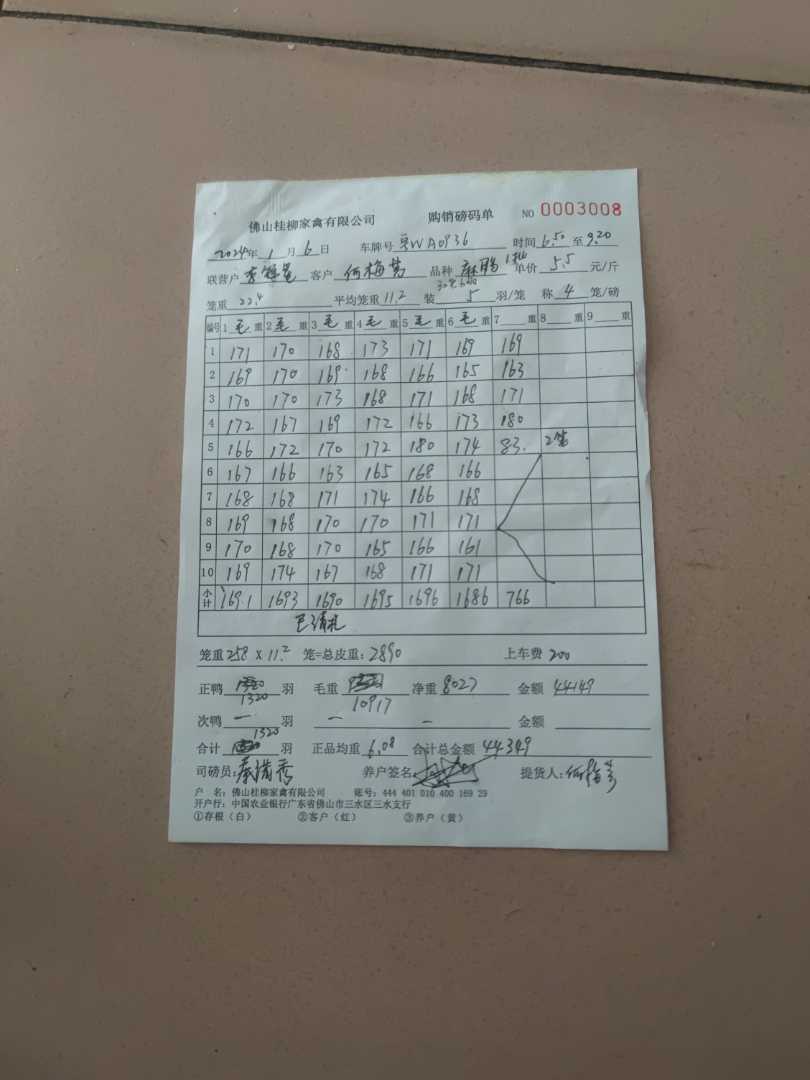 佛山桂柳家禽有限公司 购销磅码单 NO 0003008
2024年1月6日 车牌号 粤WA0936 时间 6.50 至 9.20
联营户 客户 何梅 品种 麻鸭 单价 5.5 元/斤
笼重 22.4 平均笼重 11.2 装 5 羽/笼 称 4 笼/磅
编号 1 毛 重 2 毛 重 3 毛 重 4 毛 重 5 毛 重 6 毛 重 7 重 8 重 9 重
1 171 170 168 173 171 169 169
2 169 170 169 168 166 165 163
3 170 170 173 168 171 168 171
4 172 167 169 172 166 173 180
5 166 172 170 172 180 174 83. 2笼
6 167 166 163 165 168 166
7 168 168 171 174 166 168
8 169 168 170 170 171 171
9 170 168 170 165 166 161
10 169 174 167 168 171 171
小计 1691 1693 1690 1695 1696 1686 766
已清礼
笼重 258 X 11.2 笼=总皮重: 2890 上车费 200
正鸭 1320 羽 毛重 10917 净重 8027 金额 44149
次鸭 — 羽 — — 金额
合计 1320 羽 正品均重 6.08 合计总金额 44349
司磅员: 秦满秀 养户签名: 提货人: 何梅
户 名: 佛山桂柳家禽有限公司 账号: 444 401 010 400 169 29
开户行: 中国农业银行广东省佛山市三水区三水支行
①存根(白) ②客户(红) ③养户(黄)